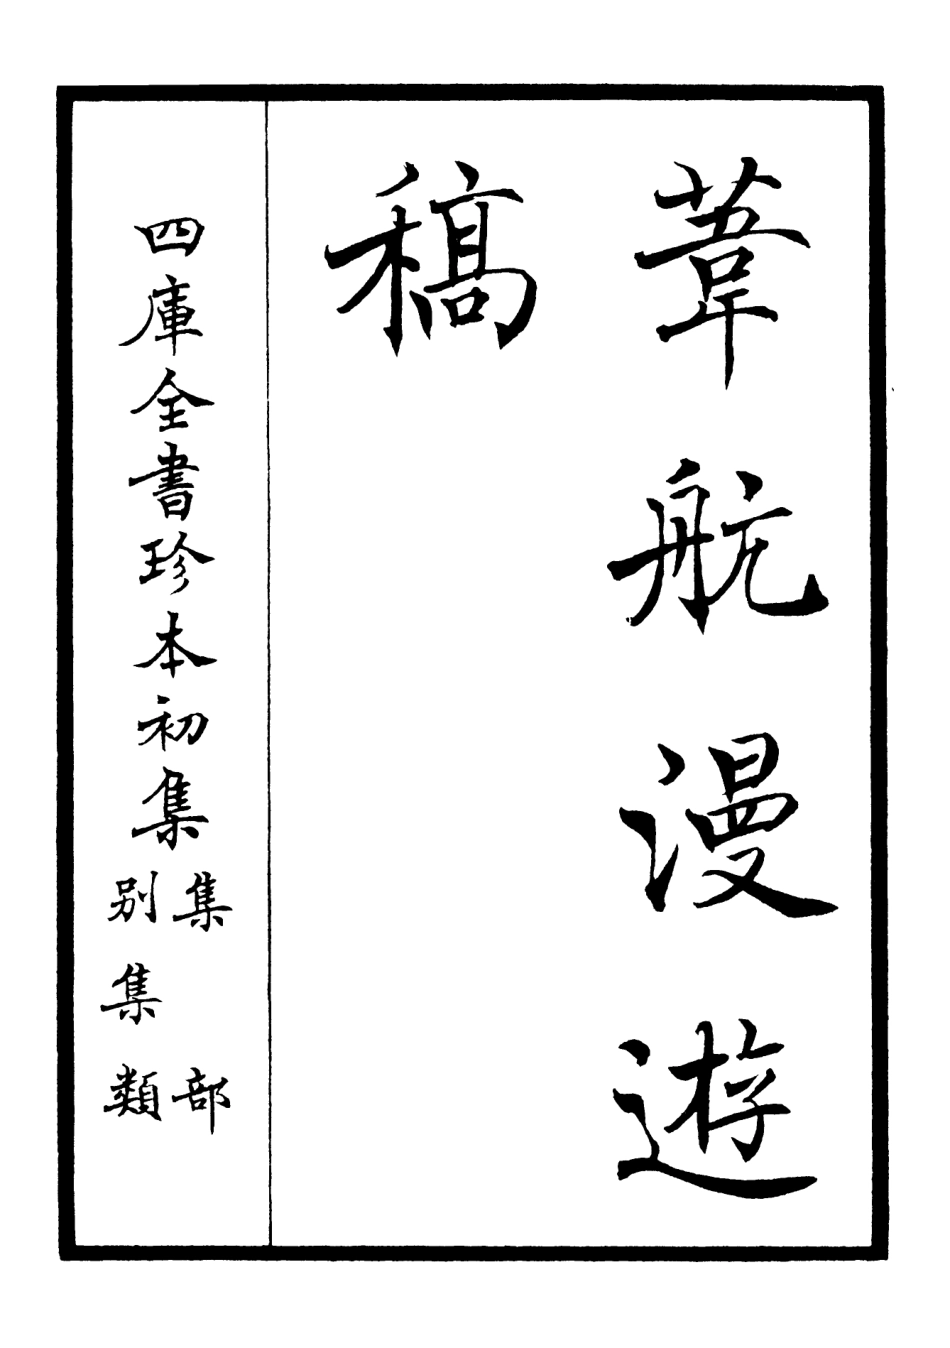 葦航漫遊
稿
四庫全書珍本初集
集部
別集類